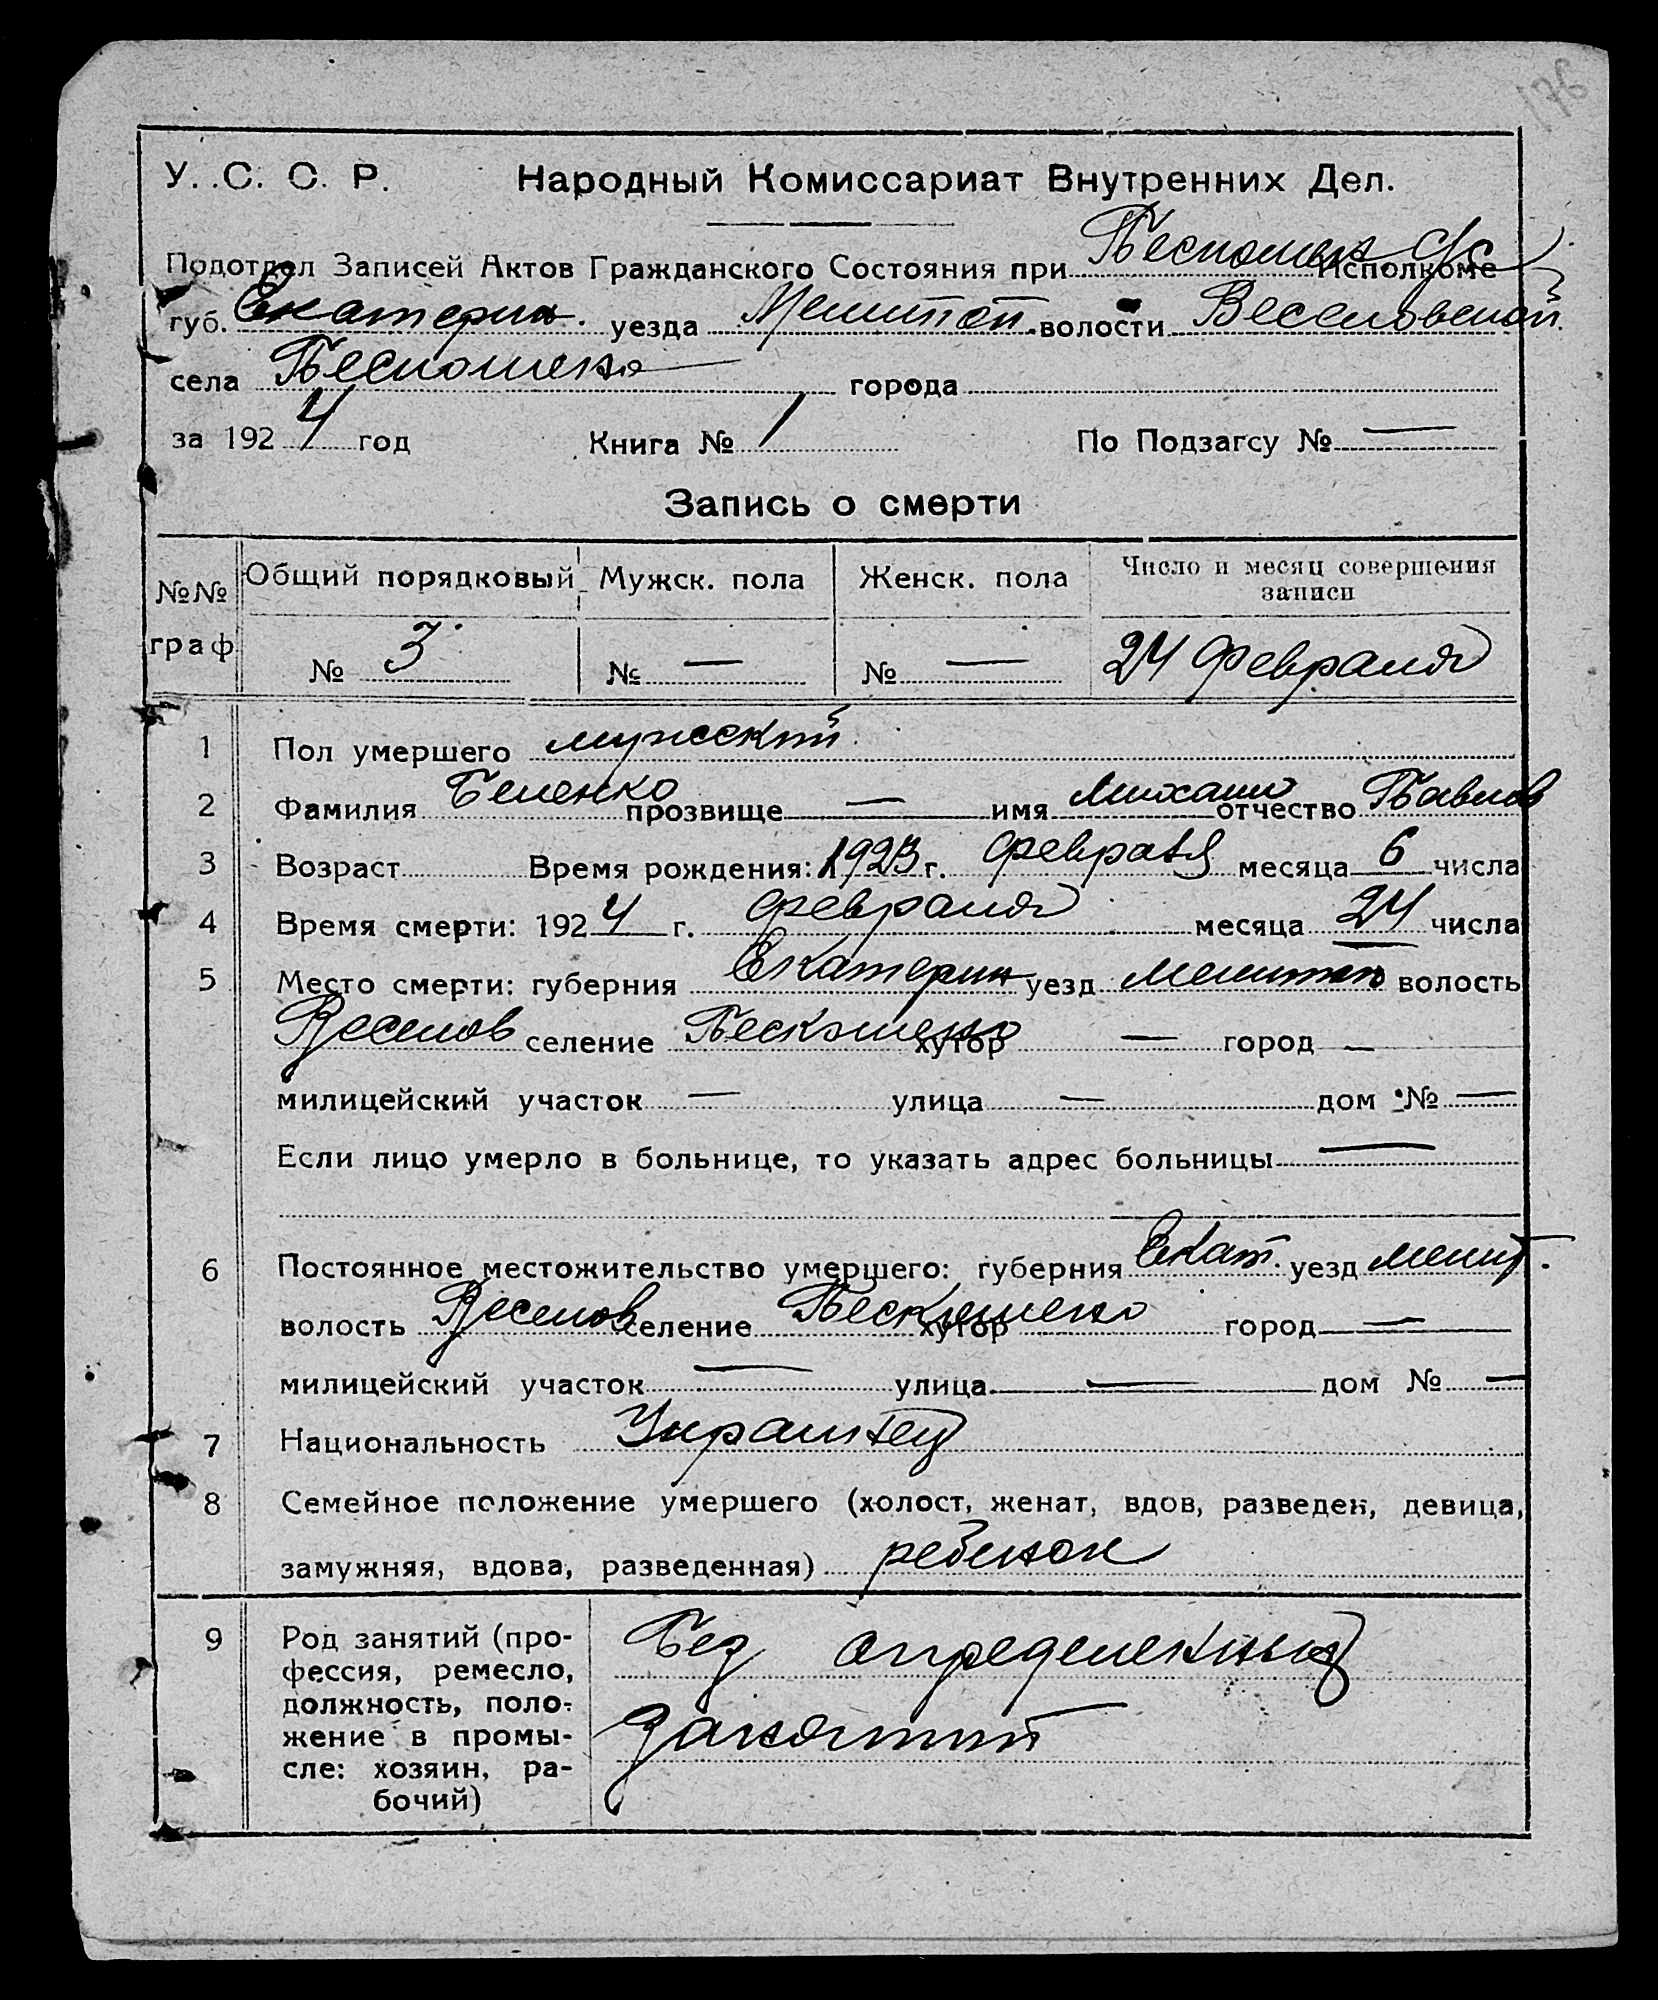 176
У. С. С. Р. Народный Комиссариат Внутренних Дел.
Подотдел Записей Актов Гражданского Состояния при Исполкоме
губ. Екатерин. уезда Мелитоп. волости Веселовской
села города
за 1924 год Книга № 1 По Подзагсу № —
Запись о смерти
№№ граф Общий порядковый Мужск. пола Женск. пола Число и месяц совершения записи
№ 3 № — № — 24 февраля
1 Пол умершего мужский
2 Фамилия Беленко прозвище — имя Михаил отчество Павлов
3 Возраст Время рождения: 1923 г. февраля месяца 6 числа
4 Время смерти: 1924 г. февраля месяца 24 числа
5 Место смерти: губерния Екатерин уезд Мелитоп волость
Веселов селение хутор — город —
милицейский участок — улица — дом № —
Если лицо умерло в больнице, то указать адрес больницы —
6 Постоянное местожительство умершего: губерния Екат. уезд Мелит.
волость Веселов селение хутор город —
милицейский участок — улица — дом № —
7 Национальность Украинец
8 Семейное положение умершего (холост, женат, вдов, разведен, девица,
замужняя, вдова, разведенная) ребенок
9 Род занятий (про-
фессия, ремесло,
должность, поло-
жение в промы-
сле: хозяин, ра-
бочий)
Без определенных
занятий